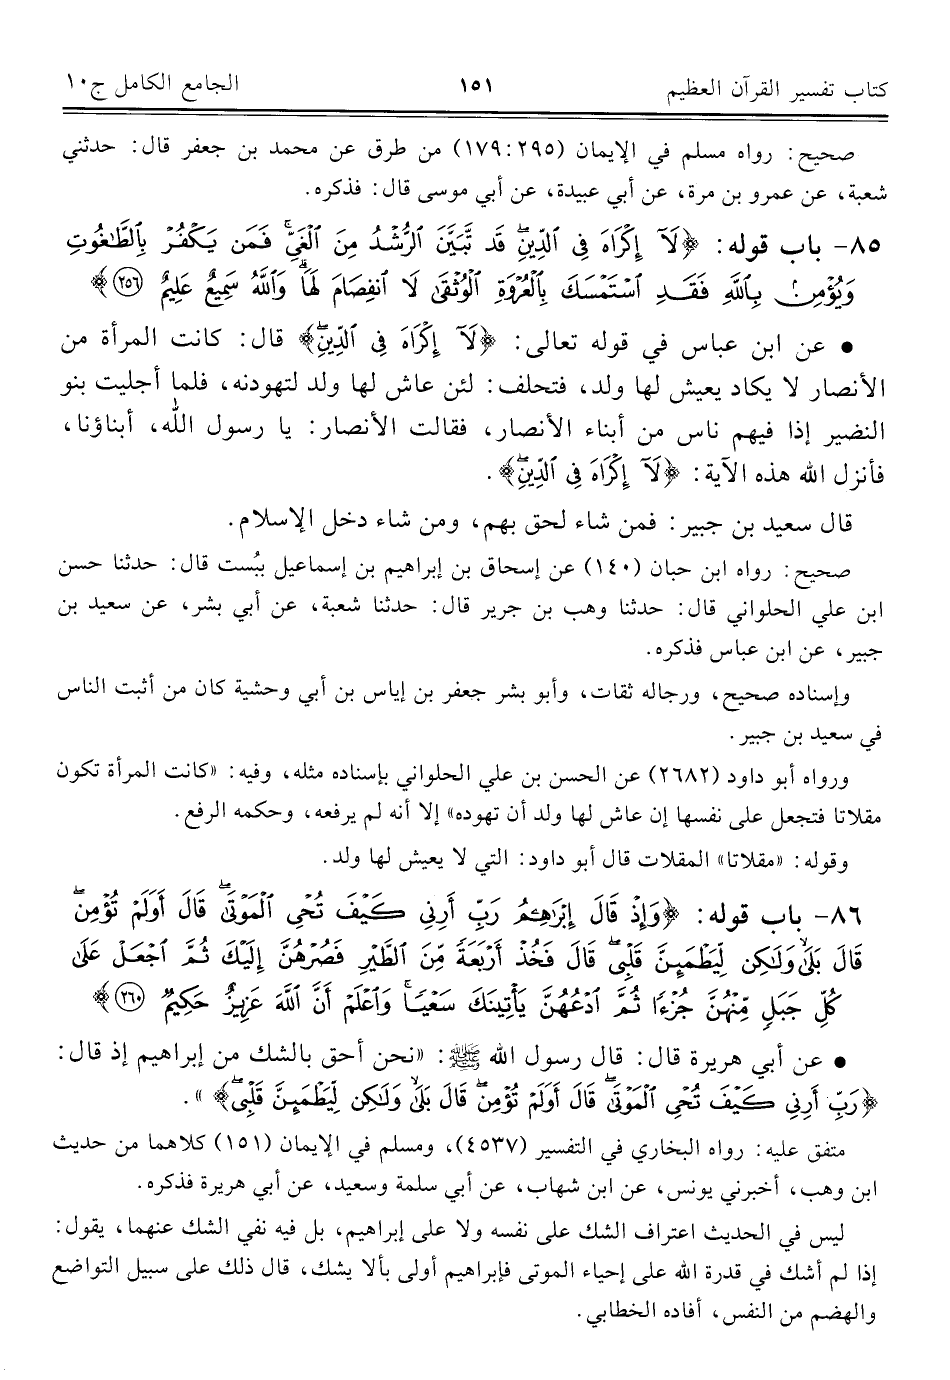 كتاب تفسير القرآن العظيم ١٥١ الجامع الكامل ج١٠
صحيح: رواه مسلم في الإيمان (١٧٩:٢٩٥) من طرق عن محمد بن جعفر قال: حدثني
شعبة، عن عمرو بن مرة، عن أبي عبيدة، عن أبي موسى قال: فذكره.
٨٥- باب قوله: ﴿لَآ إِكْرَاهَ فِى ٱلدِّينِۖ قَد تَّبَيَّنَ ٱلرُّشْدُ مِنَ ٱلْغَىِّۚ فَمَن يَكْفُرْ بِٱلطَّـٰغُوتِ
وَيُؤْمِنۢ بِٱللَّهِ فَقَدِ ٱسْتَمْسَكَ بِٱلْعُرْوَةِ ٱلْوُثْقَىٰ لَا ٱنفِصَامَ لَهَاۗ وَٱللَّهُ سَمِيعٌ عَلِيمٌ ٢٥٦﴾
• عن ابن عباس في قوله تعالى: ﴿لَآ إِكْرَاهَ فِى ٱلدِّينِۖ﴾ قال: كانت المرأة من
الأنصار لا يكاد يعيش لها ولد، فتحلف: لئن عاش لها ولد لتهودنه، فلما أجليت بنو
النضير إذا فيهم ناس من أبناء الأنصار، فقالت الأنصار: يا رسول الله، أبناؤنا،
فأنزل الله هذه الآية: ﴿لَآ إِكْرَاهَ فِى ٱلدِّينِۖ﴾.
قال سعيد بن جبير: فمن شاء لحق بهم، ومن شاء دخل الإسلام.
صحيح: رواه ابن حبان (١٤٠) عن إسحاق بن إبراهيم بن إسماعيل ببُست قال: حدثنا حسن
ابن علي الحلواني قال: حدثنا وهب بن جرير قال: حدثنا شعبة، عن أبي بشر، عن سعيد بن
جبير، عن ابن عباس فذكره.
وإسناده صحيح، ورجاله ثقات، وأبو بشر جعفر بن إياس بن أبي وحشية كان من أثبت الناس
في سعيد بن جبير.
ورواه أبو داود (٢٦٨٢) عن الحسن بن علي الحلواني بإسناده مثله، وفيه: «كانت المرأة تكون
مقلاتا فتجعل على نفسها إن عاش لها ولد أن تهوده» إلا أنه لم يرفعه، وحكمه الرفع.
وقوله: «مقلاتا» المقلات قال أبو داود: التي لا يعيش لها ولد.
٨٦- باب قوله: ﴿وَإِذْ قَالَ إِبْرَٰهِـۧمُ رَبِّ أَرِنِى كَيْفَ تُحْىِ ٱلْمَوْتَىٰۖ قَالَ أَوَلَمْ تُؤْمِنۖ
قَالَ بَلَىٰ وَلَـٰكِن لِّيَطْمَئِنَّ قَلْبِىۖ قَالَ فَخُذْ أَرْبَعَةً مِّنَ ٱلطَّيْرِ فَصُرْهُنَّ إِلَيْكَ ثُمَّ ٱجْعَلْ عَلَىٰ
كُلِّ جَبَلٍ مِّنْهُنَّ جُزْءًا ثُمَّ ٱدْعُهُنَّ يَأْتِينَكَ سَعْيًاۚ وَٱعْلَمْ أَنَّ ٱللَّهَ عَزِيزٌ حَكِيمٌ ٢٦٠﴾
• عن أبي هريرة قال: قال رسول الله ﷺ: «نحن أحق بالشك من إبراهيم إذ قال:
﴿رَبِّ أَرِنِى كَيْفَ تُحْىِ ٱلْمَوْتَىٰۖ قَالَ أَوَلَمْ تُؤْمِنۖ قَالَ بَلَىٰ وَلَـٰكِن لِّيَطْمَئِنَّ قَلْبِىۖ﴾».
متفق عليه: رواه البخاري في التفسير (٤٥٣٧)، ومسلم في الإيمان (١٥١) كلاهما من حديث
ابن وهب، أخبرني يونس، عن ابن شهاب، عن أبي سلمة وسعيد، عن أبي هريرة فذكره.
ليس في الحديث اعتراف الشك على نفسه ولا على إبراهيم، بل فيه نفي الشك عنهما، يقول:
إذا لم أشك في قدرة الله على إحياء الموتى فإبراهيم أولى بألا يشك، قال ذلك على سبيل التواضع
والهضم من النفس، أفاده الخطابي.